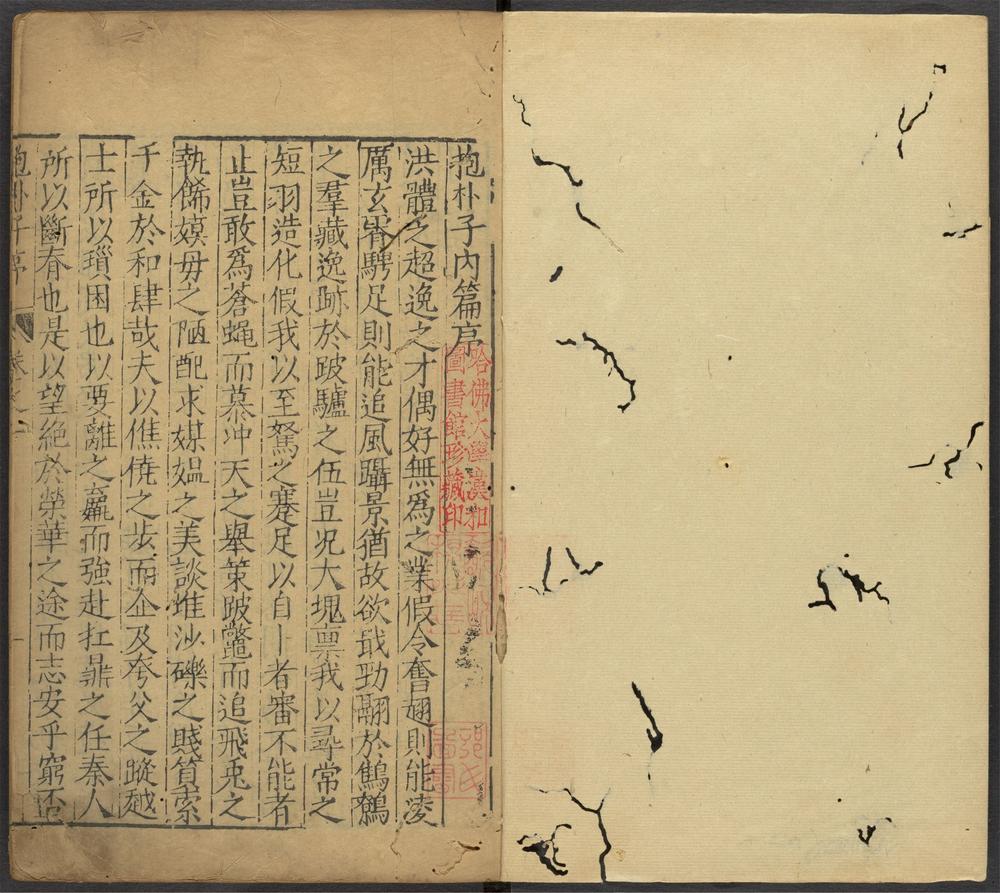 抱朴子內篇序
洪體乏超逸之才偶好無爲之業假令奮翅則能凌
厲玄霄騁足則能追風躡景猶故欲戢勁翮於鷦鷯
之羣藏逸跡於跛驢之伍豈况大塊禀我以尋常之
短羽造化假我以至駑之蹇足以自卜者審不能者
止豈敢爲蒼蝇而慕冲天之舉策跛鼈而追飛兎之
軌飾嫫母之陋配求媒媪之美談堆沙礫之賤質索
千金於和肆㢤夫以僬僥之步而企及夸父之蹤越
士所以瑣困也以要離之羸而強赴扛鼎之任秦人
所以斷眘也是以望絕於榮華之途而志安乎窮否
抱朴子序
哈佛大學漢和
圖書館珍藏印